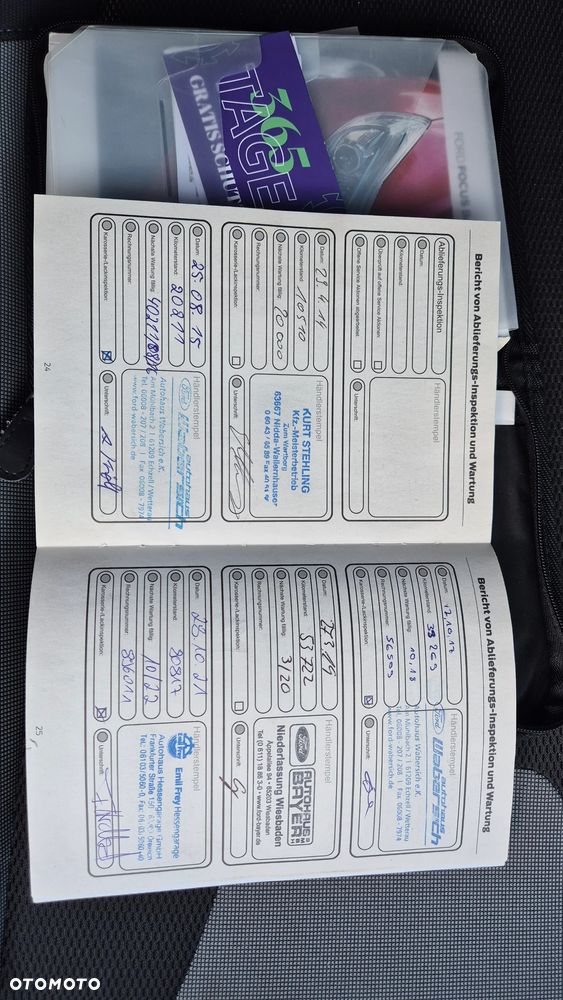 365
TAGE
GRATISSCHUT
FORD FOCUS
Bericht von Ablieferungs-Inspektion und Wartung
Ablieferungs-Inspektion
Datum:
Kilometerstand:
Überprüft auf offene Service Aktionen:
Offene Service Aktionen abgearbeitet:
Händlerstempel
Unterschrift:
Datum: 29.4.14
Kilometerstand: 10510
Nächste Wartung fällig: 20000
Rechnungsnummer:
Karosserie-/Lackinspektion:
Händlerstempel
KURT STEHLING
Kfz.-Meisterbetrieb
Zum Wartborg
63667 Nidda-Wallernhausen
Unterschrift:
Datum: 25.08.15
Kilometerstand: 20811
Nächste Wartung fällig:
Rechnungsnummer:
Karosserie-/Lackinspektion:
Händlerstempel
Ford autohaus
Wabersich
Autohaus Wabersich e.K.
Am Mühlbach 2 | 61209 Echzell / Wetterau
Tel. 06008 - 207 / 208 | Fax 06008 - 7974
www.ford-wabersich.de
Unterschrift:
24
Bericht von Ablieferungs-Inspektion und Wartung
Datum: 17.10.17
Kilometerstand: 39269
Nächste Wartung fällig: 10.18
Rechnungsnummer: 56503
Karosserie-/Lackinspektion:
Händlerstempel
Ford autohaus
Wabersich
Autohaus Wabersich e.K.
Am Mühlbach 2 | 61209 Echzell / Wetterau
Tel. 06008 - 207 / 208 | Fax 06008 - 7974
www.ford-wabersich.de
Unterschrift:
Datum: 27.3.19
Kilometerstand: 53722
Nächste Wartung fällig: 3/20
Rechnungsnummer:
Karosserie-/Lackinspektion:
Händlerstempel
Ford AUTOHAUS
BAYER GMBH
Niederlassung Wiesbaden
Appelallee 94 • 65203 Wiesbaden
Tel (0 611) 18 86 3-0 • www.ford-bayer.de
Unterschrift:
Datum: 28.10.21
Kilometerstand: 80817
Nächste Wartung fällig: 10/22
Rechnungsnummer: 896011
Karosserie-/Lackinspektion:
Händlerstempel
Emil Frey Hessengarage
Autohaus Hessengarage GmbH
Frankfurter Straße
Dreieich
Unterschrift:
25
OTOMOTO